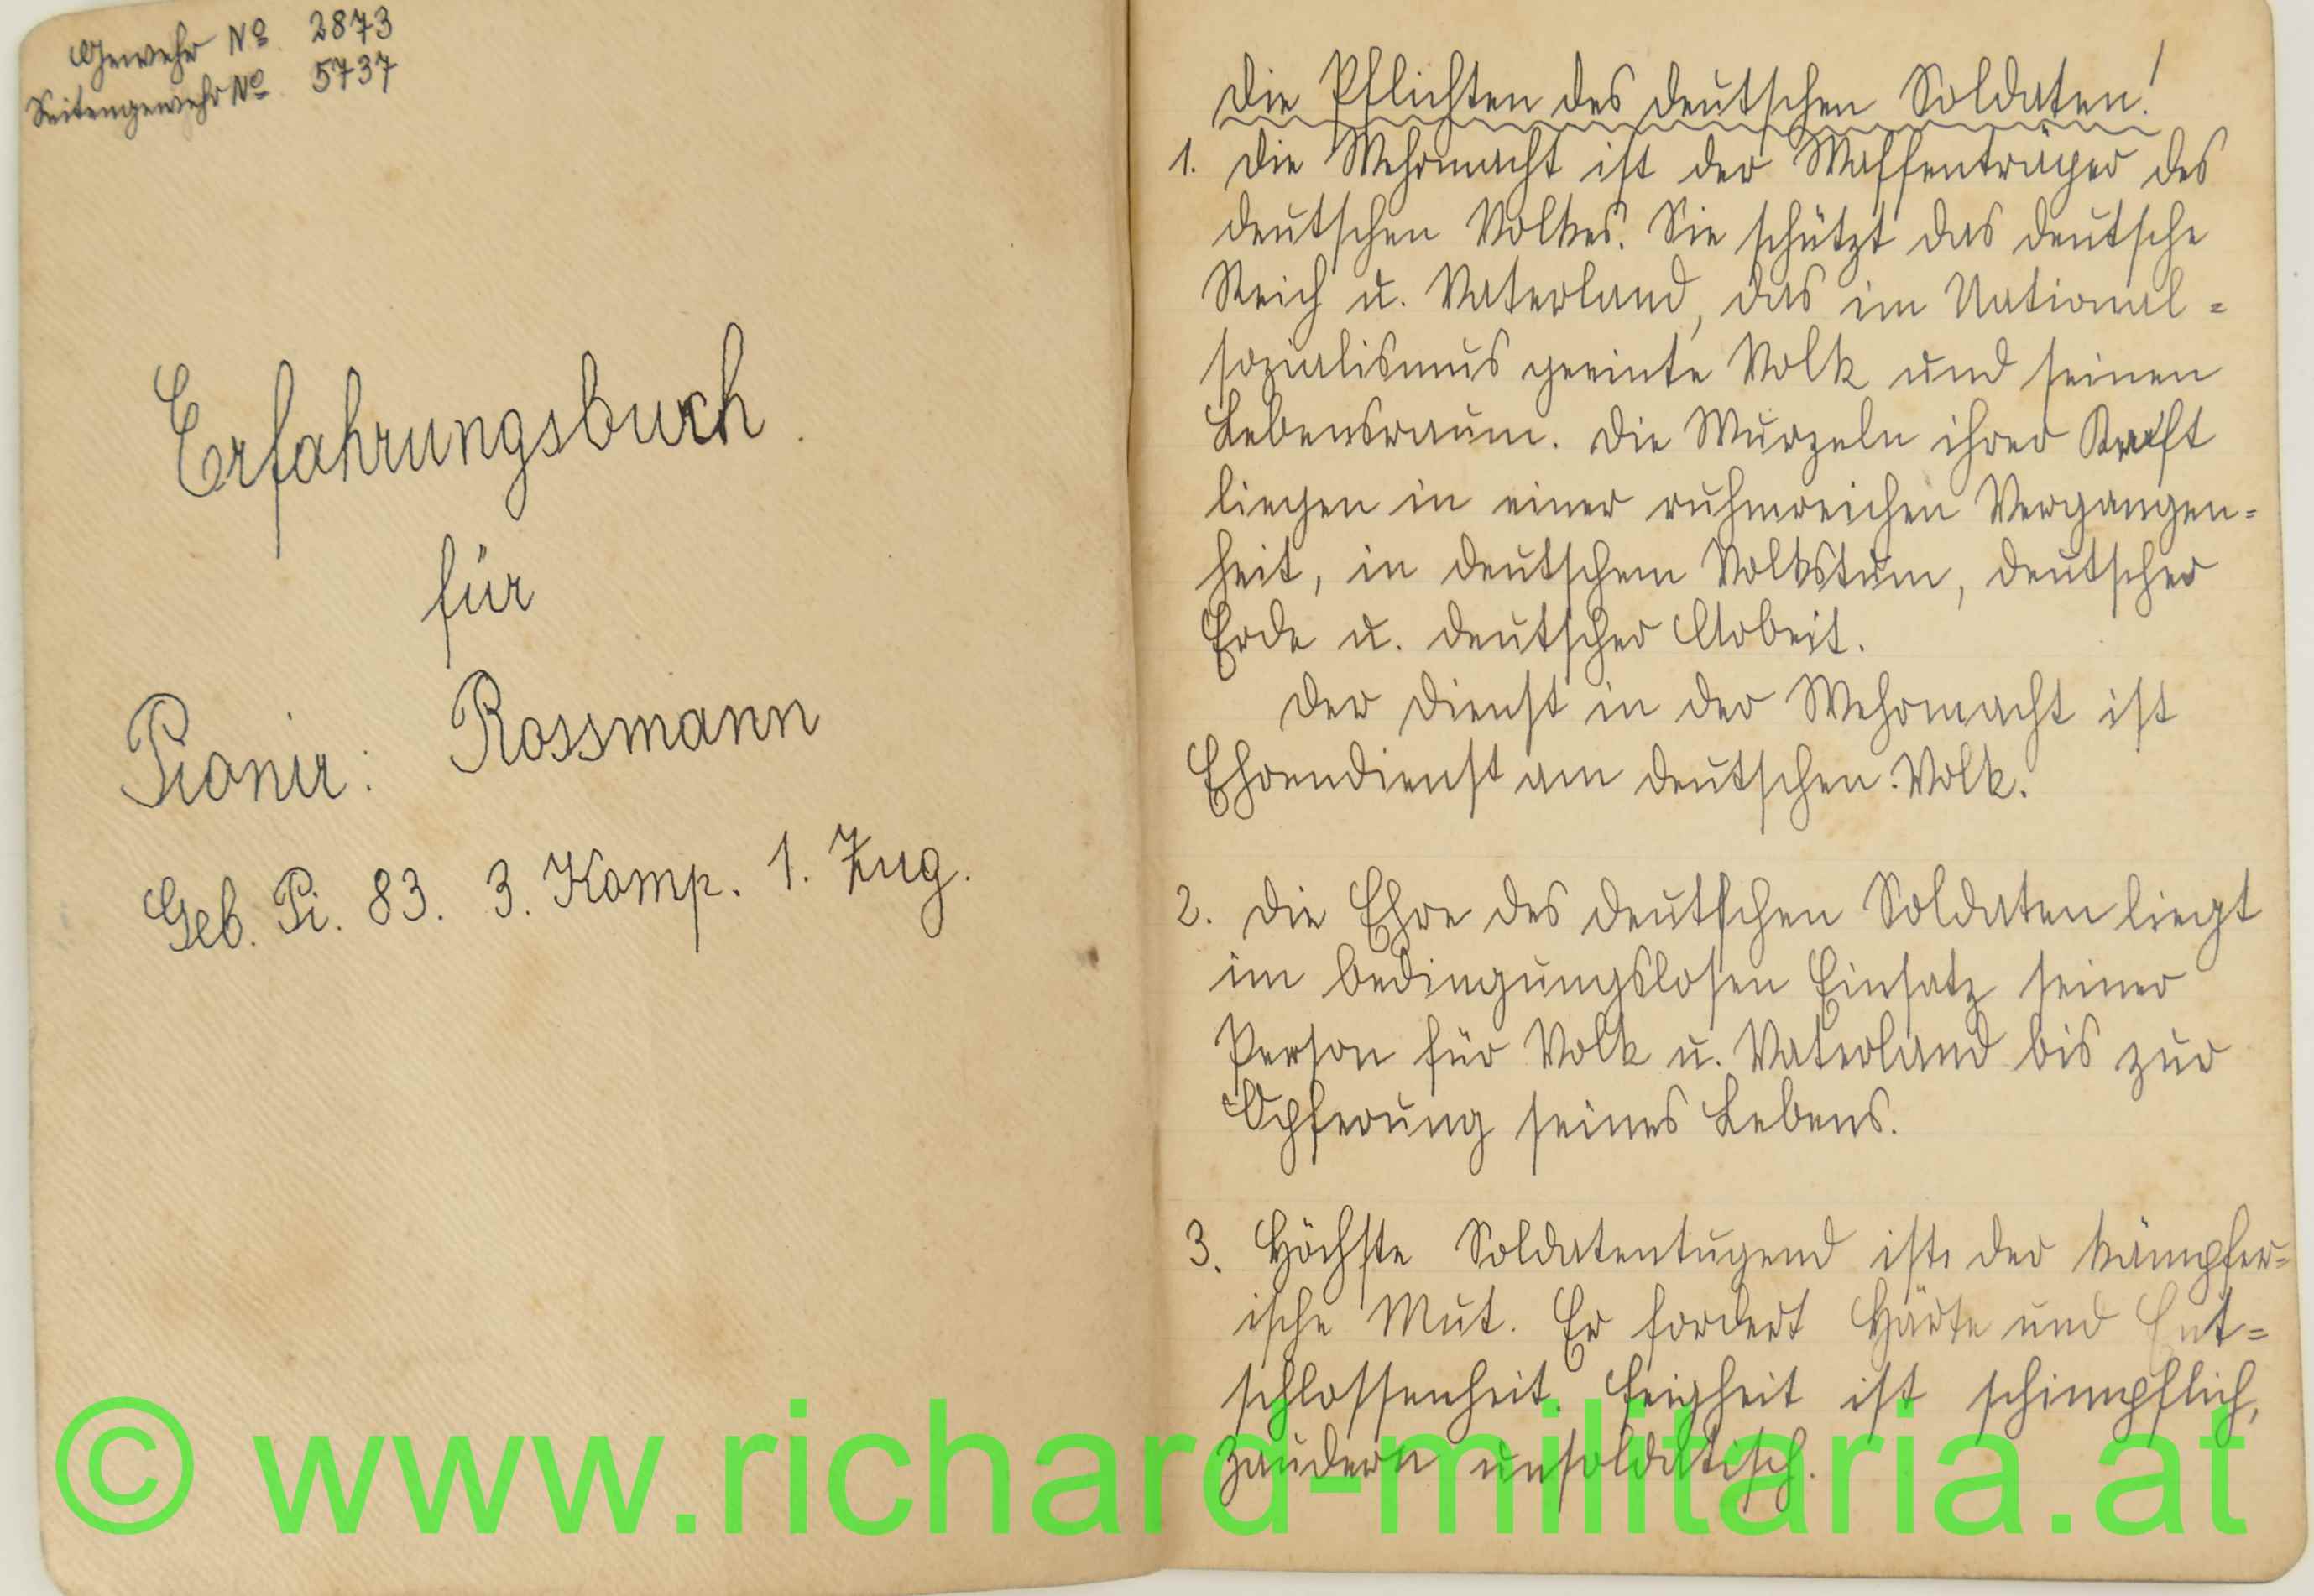 Gewehr No 2873
Seitengewehr No 5737
Erfahrungsbuch
für
Pionir: Rossmann
Geb. Pi. 83. 3. Komp. 1. Zug.
Die Pflichten des deutschen Soldaten!
1. Die Wehrmacht ist der Waffenträger des
deutschen Volkes. Sie schützt das deutsche
Reich u. Vaterland, das im National=
sozialismus geeinte Volk und seinen
Lebensraum. Die Wurzeln ihrer Kraft
liegen in einer ruhmreichen Vergangen=
heit, in deutschem Volkstum, deutscher
Erde u. deutscher Arbeit.
Der Dienst in der Wehrmacht ist
Ehrendienst am deutschen Volk.
2. Die Ehre des deutschen Soldaten liegt
im bedingungslosen Einsatz seiner
Person für Volk u. Vaterland bis zur
Opferung seines Lebens.
3. Höchste Soldatentugend ist der kämpfer=
ische Mut. Er fordert Härte und Ent=
schlossenheit. Feigheit ist schimpflich,
Zaudern unsoldatisch.
© www.richard-militaria.at